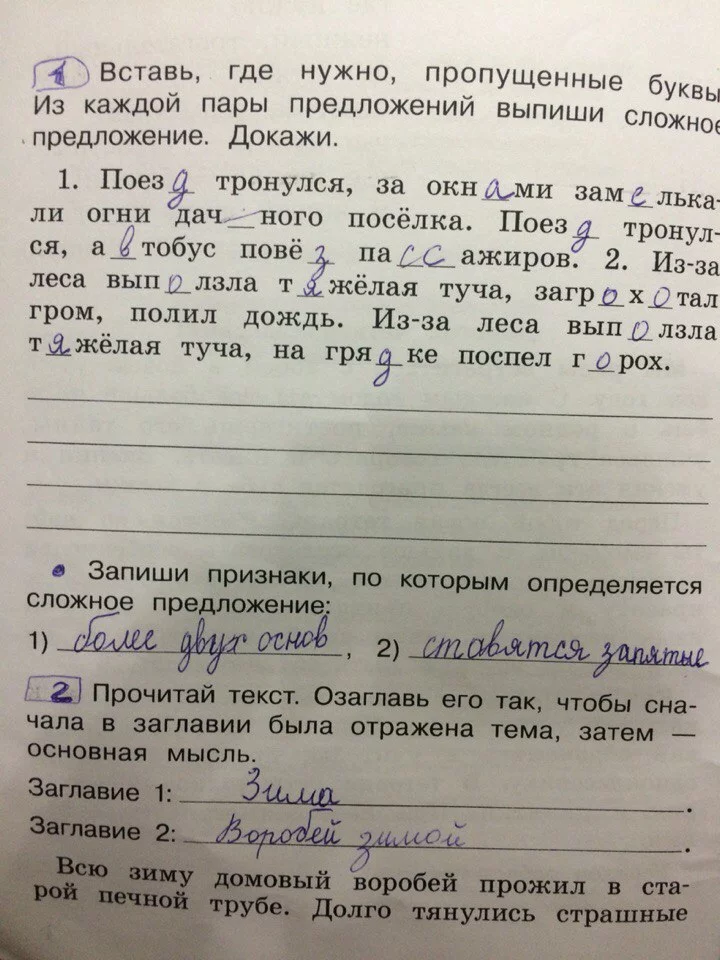 1 Вставь, где нужно, пропущенные буквы
Из каждой пары предложений выпиши сложное
предложение. Докажи.
1. Поезд тронулся, за окнами замелька-
ли огни дач_ного посёлка. Поезд тронул-
ся, автобус повёз пассажиров. 2. Из-за
леса выползла тяжёлая туча, загрохотал
гром, полил дождь. Из-за леса выползла
тяжёлая туча, на грядке поспел горох.
• Запиши признаки, по которым определяется
сложное предложение:
1) более двух основ, 2) ставятся запятые
2 Прочитай текст. Озаглавь его так, чтобы сна-
чала в заглавии была отражена тема, затем —
основная мысль.
Заглавие 1: Зима.
Заглавие 2: Воробей зимой.
Всю зиму домовый воробей прожил в ста-
рой печной трубе. Долго тянулись страшные